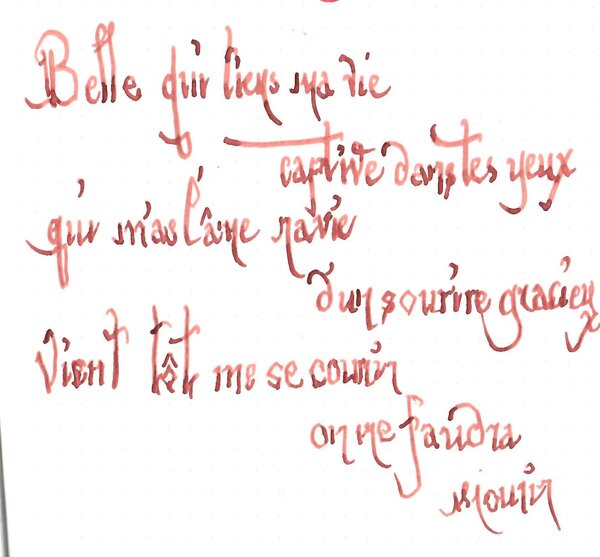 Belle qui tiens ma vie
captive dans tes yeux
qui m'as l'âme ravie
d'un sourire gracieux
Vient tôt me secourir
ou me faudra
mourir